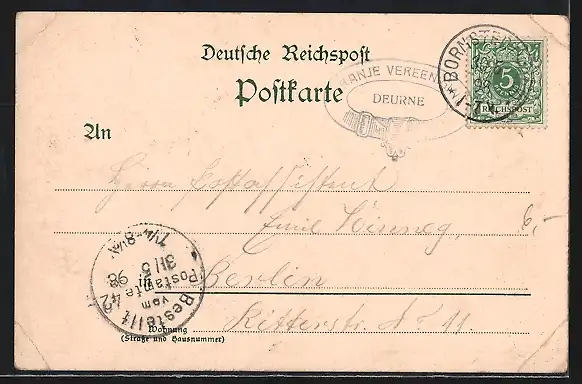 Deutsche Reichspost
Postkarte
ORANJE VEREEN
DEURNE
BORNSTE
5
REICHSPOST
An
Herrn Postassistent
Emil
6,-
Berlin
Ritterstr. No 11.
Bestellt
vom
Postamte 42
31/5
98
7¼-8¼V
Wohnung
(Straße und Hausnummer)